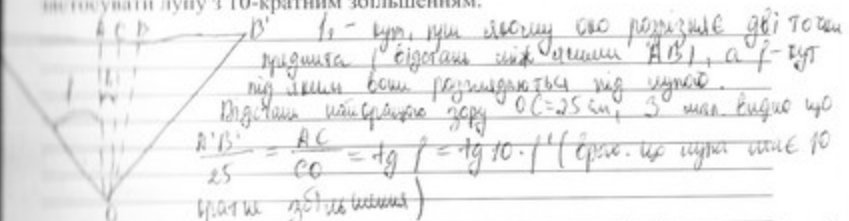 застосувати лупу з 10-кратним збільшенням.
A C B B' f₁ - кут, при якому око розрізняє дві точки
предмета (відстань між якими AB), а f - кут
під яким вони розглядаються під лупою.
Відстань найкращого зору OC=25 см, З мал. видно що
A'B'/25 = AC/CO = tg f = tg 10 · f' ( лупа має 10
кратне збільшення)
O